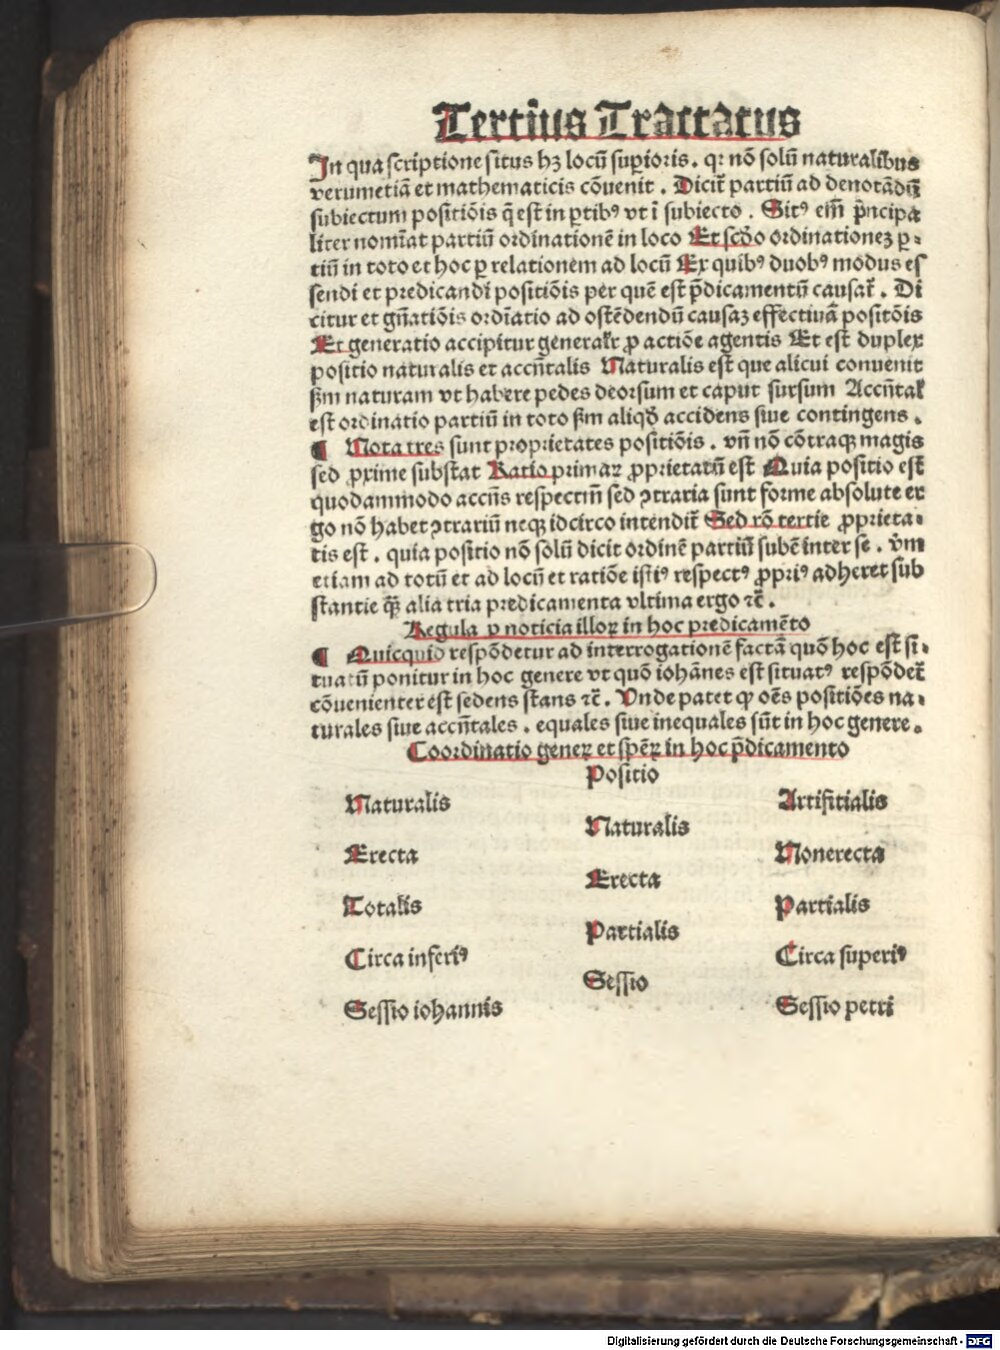 Tertius Tractatus
In qua scriptione situs hꝫ locū superioris. qr nō solū naturalibus
verumetiā et mathematicis cōuenit. Dicit̃ partiū ad denotādū
subiectum positiōis q̄ est in ꝑtibꝰ vt ī subiecto. Sitꝰ em̄ p̄ncipa
liter nomīat partiū ordinationē in loco Et scd̄o ordinationeꝫ ꝑ-
tiū in toto et hoc ꝑ relationem ad locū Ex quibꝰ duobꝰ modus es
sendi et predicandi positiōis per quē est p̄dicamentū causat̃. Di
citur et gn̄atiōis ordīatio ad ostēdendū causaꝫ effectiuā positōis
Et generatio accipitur generalr̄ ꝓ actiōe agentis Et est duplex
positio naturalis et accn̄talis Naturalis est que alicui conuenit
ẜm naturam vt habere pedes deorsum et caput sursum Accn̄tal̄
est ordinatio partiū in toto ẜm aliqḋ accidens siue contingens.
¶ Nota tres sunt proprietates positiōis. vn̄ nō cōtraqꝫ magis
sed ꝓxime substat Ratio primaꝝ ꝓprietatū est Quia positio est
quodammodo accn̄s respectm̄ sed ꝯtraria sunt forme absolute er
go nō habet ꝯtrariū neqꝫ idcirco intendit̃ Sed rō tertie ꝓprieta-
tis est. quia positio nō solū dicit ordinē partiū subē inter se. vm̄
etiam ad totū et ad locū et ratiōe istiꝰ respectꝰ ꝓpriꝰ adheret sub
stantie q̄ꝫ alia tria predicamenta vltima ergo ⁊c̄.
Regula ꝑ noticia illoꝝ in hoc predicamēto
¶ Quicquid respōdetur ad interrogationē factā quō hoc est si-
tuatū ponitur in hoc genere vt quō iohānes est situatꝰ respōdet̃
cōuenienter est sedens stans ⁊c̄. Vnde patet ꝙ oēs positiōes na-
turales siue accn̄tales. equales siue inequales sūt in hoc genere.
Coordinatio geneꝝ et spēꝝ in hoc p̄dicamento
Positio
Naturalis Artifitialis
Naturalis
Erecta Nonerecta
Erecta
Totalis Partialis
Partialis
Circa inferiꝰ Circa superiꝰ
Sessio
Sessio iohannis Sessio petri
Digitalisierung gefördert durch die Deutsche Forschungsgemeinschaft - DFG